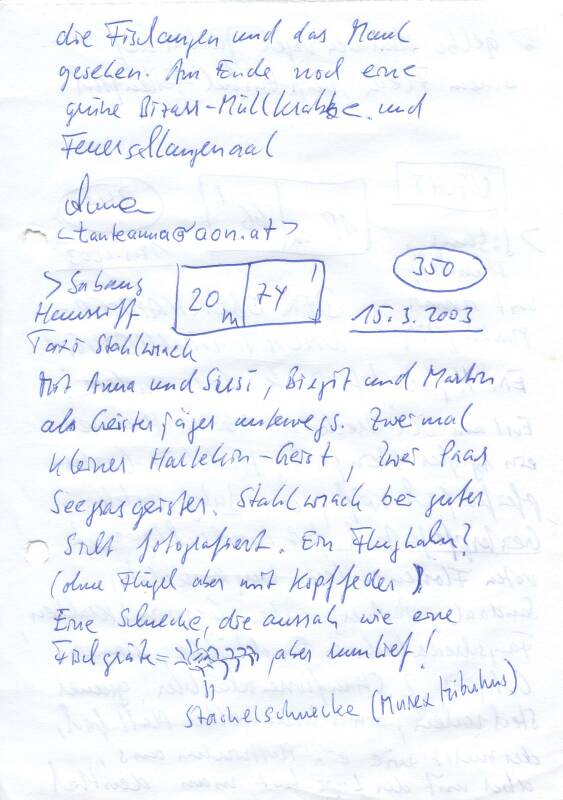 die Fischaugen und das Maul
gesehen. Am Ende noch eine
grüne Bizarr-Müllkrabbe und
Feuerschlangenaal
Anna
<tanteanna@aon.at>
> Sabang
Hausriff
20 m 74'
350
15.3.2003
Taxi Stahlwrack
Mit Anna und Susi, Birgit und Martin
als Geisterjäger unterwegs. Zweimal
kleiner Harlekin-Geist, zwei Paar
Seegrasgeister. Stahlwrack bei guter
Sicht fotografiert. Ein Flughahn?
(ohne Flügel aber mit Kopffeder)
Eine Schnecke, die aussah wie eine
Fischgräte = , aber rumlief!
Stachelschnecke (Murex tribulus)